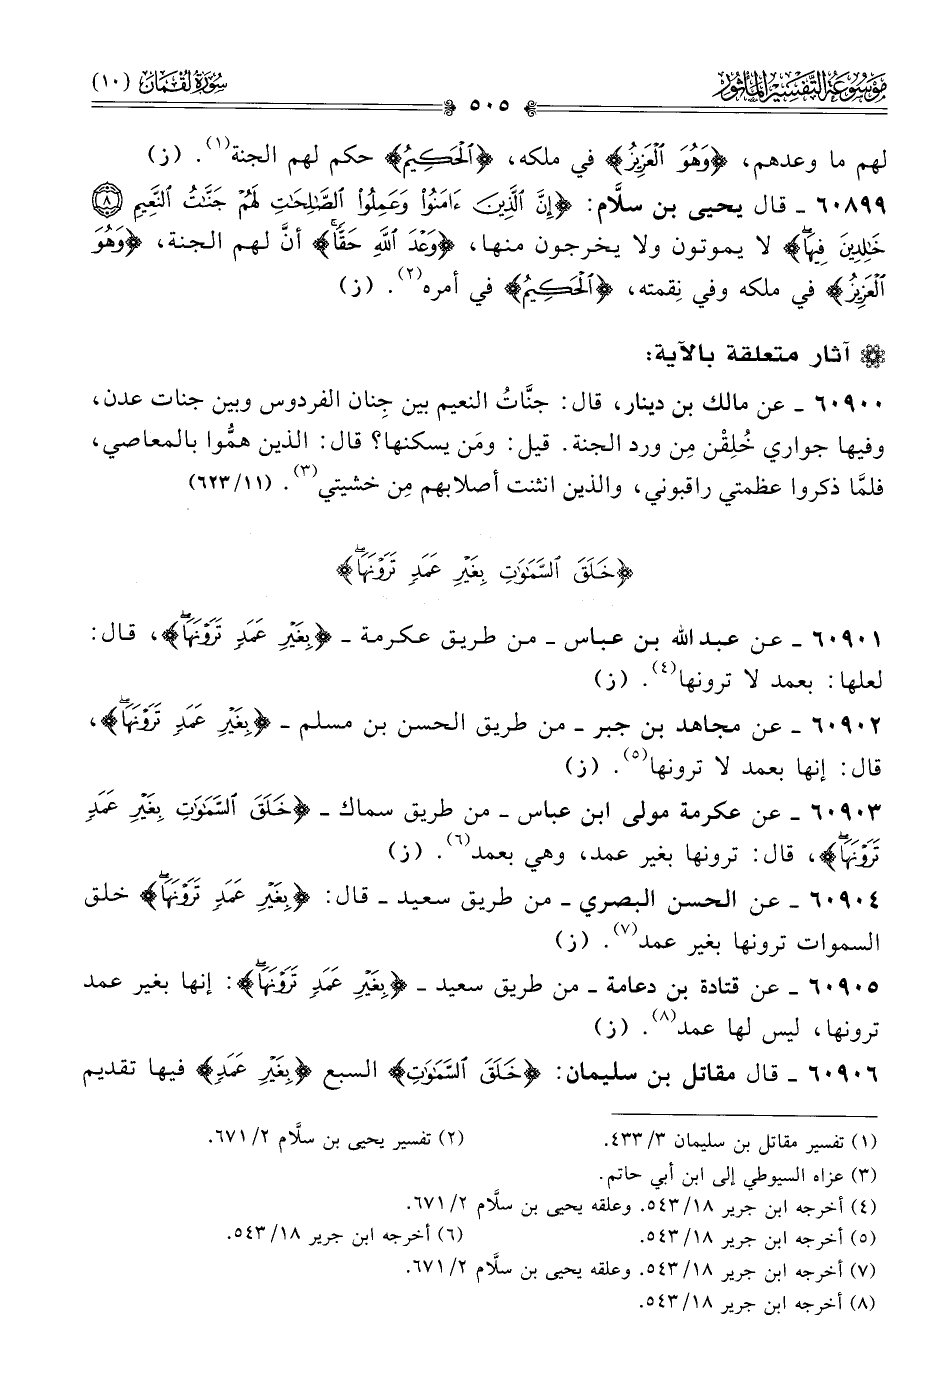 موسوعة التفسير المأثور
سورة لقمان (١٠)
٥٠٥
لهم ما وعدهم، ﴿وَهُوَ ٱلْعَزِيزُ﴾ في ملكه، ﴿ٱلْحَكِيمُ﴾ حكم لهم الجنة(١). (ز)
٦٠٨٩٩ ـ قال يحيى بن سلَّام: ﴿إِنَّ ٱلَّذِينَ ءَامَنُوا۟ وَعَمِلُوا۟ ٱلصَّـٰلِحَـٰتِ لَهُمْ جَنَّـٰتُ ٱلنَّعِيمِ ۝٨
خَـٰلِدِينَ فِيهَاۖ﴾ لا يموتون ولا يخرجون منها، ﴿وَعْدَ ٱللَّهِ حَقًّاۚ﴾ أنَّ لهم الجنة، ﴿وَهُوَ
ٱلْعَزِيزُ﴾ في ملكه وفي نِقمته، ﴿ٱلْحَكِيمُ﴾ في أمره(٢). (ز)
آثار متعلقة بالآية:
٦٠٩٠٠ ـ عن مالك بن دينار، قال: جنَّاتُ النعيم بين جِنان الفردوس وبين جنات عدن،
وفيها جواري خُلِقْن مِن ورد الجنة. قيل: ومَن يسكنها؟ قال: الذين همُّوا بالمعاصي،
فلمَّا ذكروا عظمتي راقبوني، والذين انثنت أصلابهم مِن خشيتي(٣). (٦٢٣/١١)
﴿خَلَقَ ٱلسَّمَـٰوَٰتِ بِغَيْرِ عَمَدٍ تَرَوْنَهَاۖ﴾
٦٠٩٠١ ـ عن عبد الله بن عباس ـ من طريق عكرمة ـ ﴿بِغَيْرِ عَمَدٍ تَرَوْنَهَاۖ﴾، قال:
لعلها: بعمد لا ترونها(٤). (ز)
٦٠٩٠٢ ـ عن مجاهد بن جبر ـ من طريق الحسن بن مسلم ـ ﴿بِغَيْرِ عَمَدٍ تَرَوْنَهَاۖ﴾،
قال: إنها بعمد لا ترونها(٥). (ز)
٦٠٩٠٣ ـ عن عكرمة مولى ابن عباس ـ من طريق سماك ـ ﴿خَلَقَ ٱلسَّمَـٰوَٰتِ بِغَيْرِ عَمَدٍ
تَرَوْنَهَاۖ﴾، قال: ترونها بغير عمد، وهي بعمد(٦). (ز)
٦٠٩٠٤ ـ عن الحسن البصري ـ من طريق سعيد ـ قال: ﴿بِغَيْرِ عَمَدٍ تَرَوْنَهَاۖ﴾ خلق
السموات ترونها بغير عمد(٧). (ز)
٦٠٩٠٥ ـ عن قتادة بن دعامة ـ من طريق سعيد ـ ﴿بِغَيْرِ عَمَدٍ تَرَوْنَهَاۖ﴾: إنها بغير عمد
ترونها، ليس لها عمد(٨). (ز)
٦٠٩٠٦ ـ قال مقاتل بن سليمان: ﴿خَلَقَ ٱلسَّمَـٰوَٰتِ﴾ السبع ﴿بِغَيْرِ عَمَدٍ﴾ فيها تقديم
(١) تفسير مقاتل بن سليمان ٣/ ٤٣٣. (٢) تفسير يحيى بن سلَّام ٢/ ٦٧١.
(٣) عزاه السيوطي إلى ابن أبي حاتم.
(٤) أخرجه ابن جرير ١٨/ ٥٤٣. وعلقه يحيى بن سلَّام ٢/ ٦٧١.
(٥) أخرجه ابن جرير ١٨/ ٥٤٣. (٦) أخرجه ابن جرير ١٨/ ٥٤٣.
(٧) أخرجه ابن جرير ١٨/ ٥٤٣. وعلقه يحيى بن سلَّام ٢/ ٦٧١.
(٨) أخرجه ابن جرير ١٨/ ٥٤٣.